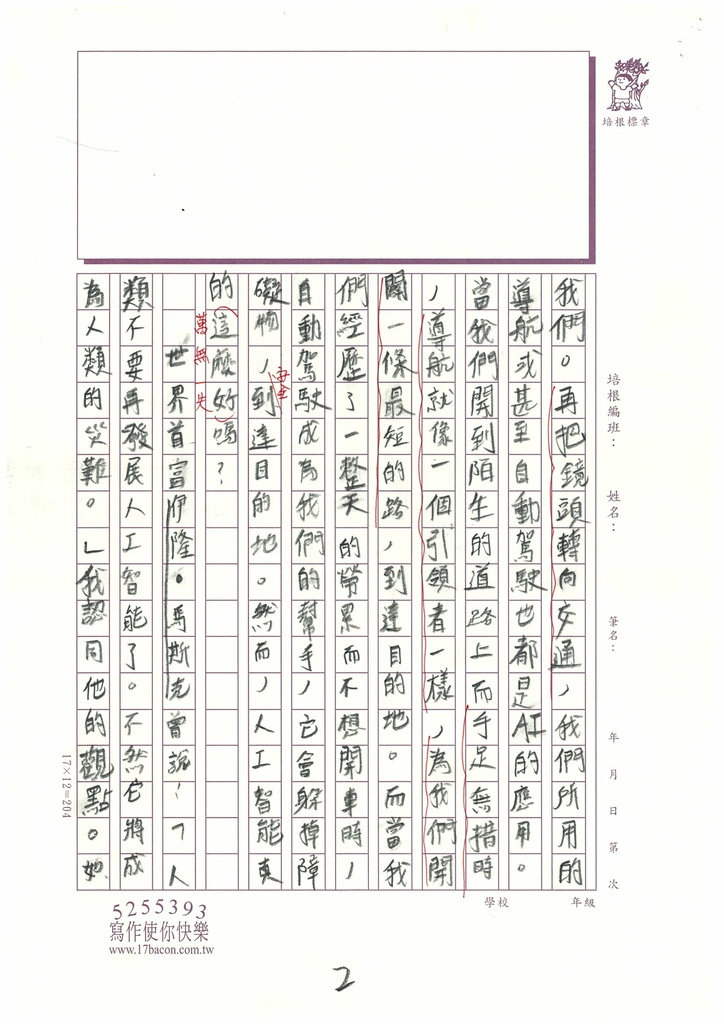 培根標章
培根編班：
姓名：
筆名：
年 月 日 第 次
學校
年級
我們。再把鏡頭轉向交通，我們所用的
導航或甚至自動駕駛也都是AI的應用。
當我們開到陌生的道路上而手足無措時
，導航就像一個引領者一樣，為我們開
闢一條最短的路，到達目的地。而當我
們經歷了一整天的勞累而不想開車時，
自動駕駛成為我們的幫手，它會躲掉障
礙物，到達目的地。然而，人工智能真
安全
的（這麼好）嗎？
萬無一失
世界首富伊隆·馬斯克曾說：「人
類不要再發展人工智能了。不然它將成
為人類的災難。」我認同他的觀點。她
17×12=204
5255393
寫作使你快樂
www.17bacon.com.tw
2